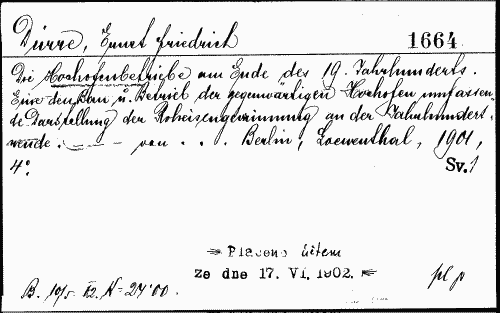 Dürre, Ernst Friedrich
1664
Die Hochofenbetriebe am Ende des 19. Jahrhunderts.
Eine den Bau u. Betrieb der gegenwärtigen Hochöfen umfassen-
de Darstellung der Roheisengewinnung an der Jahrhundert-
wende. — von . . . Berlin, Loewenthal, 1901,
4°. Sv. 1
Placeno účtem
ze dne 17. VI. 1902.
pl p
B. 10/5 K-27·00.